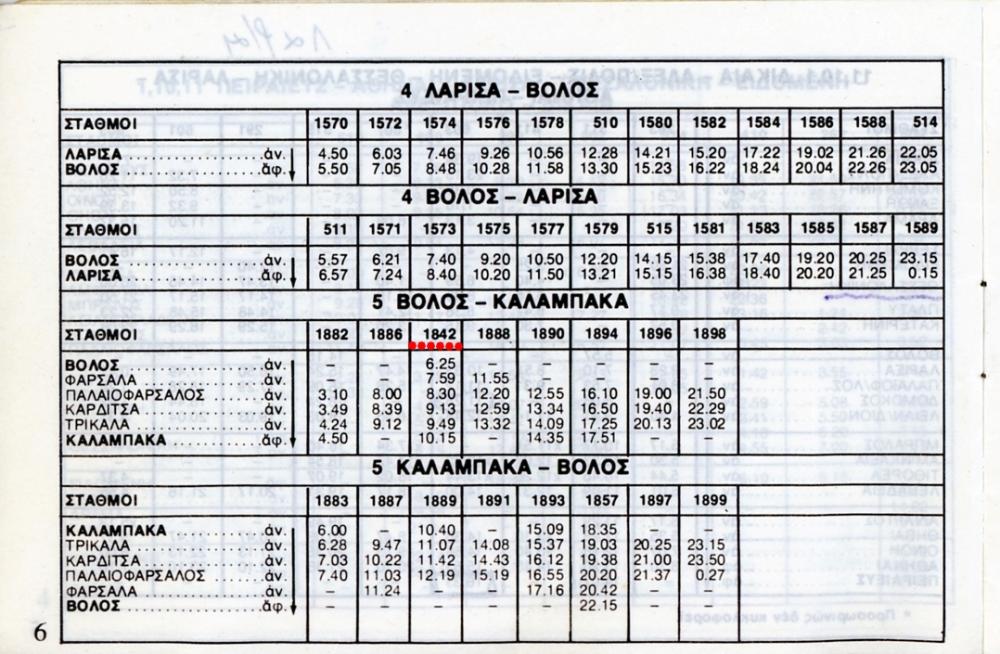 4 ΛΑΡΙΣΑ – ΒΟΛΟΣ
ΣΤΑΘΜΟΙ 1570 1572 1574 1576 1578 510 1580 1582 1584 1586 1588 514
ΛΑΡΙΣΑ ἀν. 4.50 6.03 7.46 9.26 10.56 12.28 14.21 15.20 17.22 19.02 21.26 22.05
ΒΟΛΟΣ ἀφ. 5.50 7.05 8.48 10.28 11.58 13.30 15.23 16.22 18.24 20.04 22.26 23.05
4 ΒΟΛΟΣ – ΛΑΡΙΣΑ
ΣΤΑΘΜΟΙ 511 1571 1573 1575 1577 1579 515 1581 1583 1585 1587 1589
ΒΟΛΟΣ ἀν. 5.57 6.21 7.40 9.20 10.50 12.20 14.15 15.38 17.40 19.20 20.25 23.15
ΛΑΡΙΣΑ ἀφ. 6.57 7.24 8.40 10.20 11.50 13.21 15.15 16.38 18.40 20.20 21.25 0.15
5 ΒΟΛΟΣ – ΚΑΛΑΜΠΑΚΑ
ΣΤΑΘΜΟΙ 1882 1886 1842 1888 1890 1894 1896 1898
ΒΟΛΟΣ ἀν. – – 6.25 – – – – –
ΦΑΡΣΑΛΑ ἀν. – – 7.59 11.55 – – – –
ΠΑΛΑΙΟΦΑΡΣΑΛΟΣ ἀν. 3.10 8.00 8.30 12.20 12.55 16.10 19.00 21.50
ΚΑΡΔΙΤΣΑ ἀν. 3.49 8.39 9.13 12.59 13.34 16.50 19.40 22.29
ΤΡΙΚΑΛΑ ἀν. 4.24 9.12 9.49 13.32 14.09 17.25 20.13 23.02
ΚΑΛΑΜΠΑΚΑ ἀφ. 4.50 – 10.15 – 14.35 17.51 – –
5 ΚΑΛΑΜΠΑΚΑ – ΒΟΛΟΣ
ΣΤΑΘΜΟΙ 1883 1887 1889 1891 1893 1857 1897 1899
ΚΑΛΑΜΠΑΚΑ ἀν. 6.00 – 10.40 – 15.09 18.35 – –
ΤΡΙΚΑΛΑ ἀν. 6.28 9.47 11.07 14.08 15.37 19.03 20.25 23.15
ΚΑΡΔΙΤΣΑ ἀν. 7.03 10.22 11.42 14.43 16.12 19.38 21.00 23.50
ΠΑΛΑΙΟΦΑΡΣΑΛΟΣ ἀν. 7.40 11.03 12.19 15.19 16.55 20.20 21.37 0.27
ΦΑΡΣΑΛΑ ἀν. – 11.24 – – 17.16 20.42 – –
ΒΟΛΟΣ ἀφ. – – – – – 22.15 – –
6